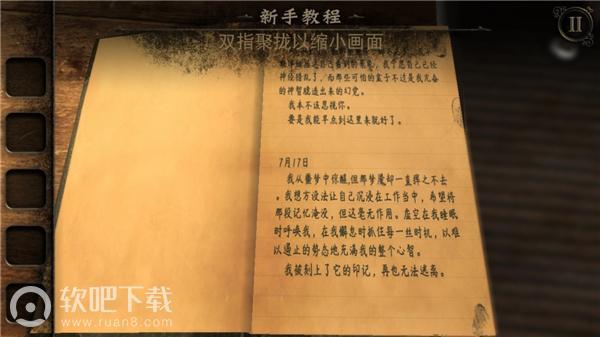 新手教程
双指聚拢以缩小画面
II
神经错乱了，而那些可怕的盒子不过是我亢奋
的神智臆造出来的幻觉。
我本不该忽视你。
要是我能早点到这里来就好了。
7月17日
我从噩梦中惊醒，但那梦魇却一直挥之不去
。我想方设法让自己沉浸在工作当中，希望将
那段记忆淹没，但这毫无作用。虚空在我睡眠
时呼唤我，在我懈怠时抓住每一丝时机，以难
以遏止的势态地充满我的整个心智。
我被刻上了它的印记，再也无法逃离。
软吧下载
www.ruan8.com